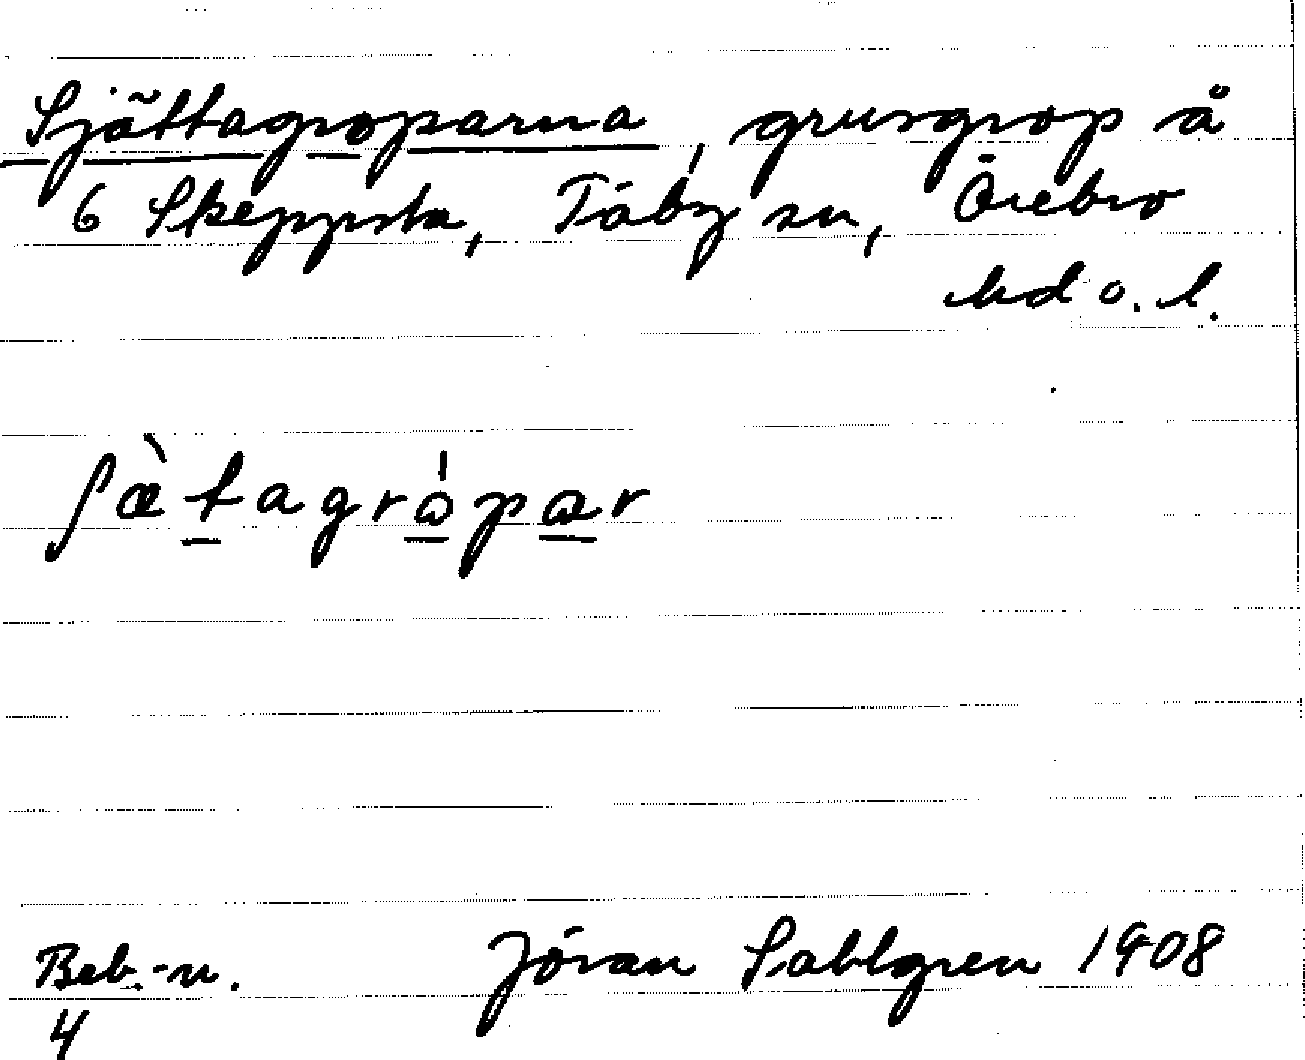 Sjättagroparna, grusgrop å
6 Skeppsta, Täby sn, Örebro
hd o. l.
ʃæ̀tagrɷ́par
Beb.-n. Jöran Sahlgren 1908
4